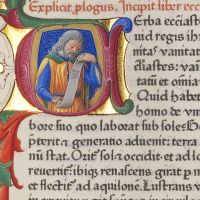 Explicit plogus. Incipit liber eccl
Erba eccłiast
uid regis ihr
nitas vanitat
cłiastes: vani
tatū et omia
Quid habet
homo de vn
bore suo quo laborat sub sole? G
pterit a generatio aduenit: terra
nū stat. Orit sol a occidit et ad lo
reuertit: ibiqz renascens girat p m
et flectit ad aquilonē. Lustrans v